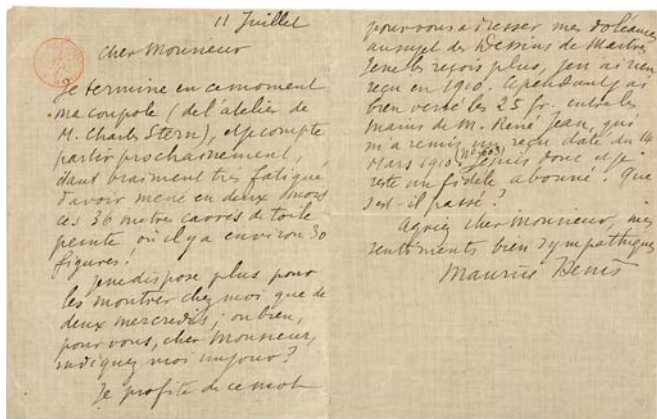 11 Juillet
cher Monsieur
Je termine en ce moment
ma coupole (de l'atelier de
M. Charles Stern), et je compte
partir prochainement,
étant vraiment très fatigué
d'avoir mené en deux mois
ces 36 mètres carrés de toile
peinte où il y a environ 30
figures!
Je ne dispose plus pour
les montrer chez moi que de
deux mercredis; ou bien,
pour vous, cher Monsieur,
indiquez moi un jour?
Je profite de ce mot
pour vous adresser mes doléances
au sujet des Dessins de Maîtres
Je ne les reçois plus, je n'ai rien
reçu en 1910. Cependant j'ai
bien versé les 25 fr. entre les
mains de M. René Jean, qui
m'a remis un reçu daté du 14
Mars 1910 (N° 603). Je suis donc et je
reste un fidèle abonné. Que
s'est-il passé?
Agréez cher Monsieur, mes
sentiments bien sympathiques
Maurice Denis